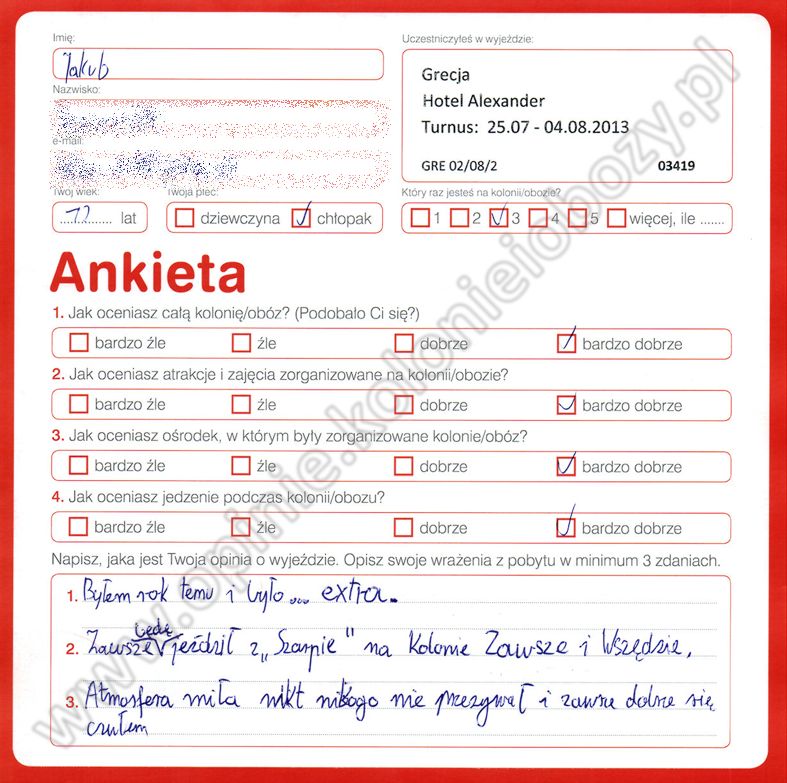 Imię:
Jakub
Uczestniczyłeś w wyjeździe:
Grecja
Hotel Alexander
Turnus: 25.07 - 04.08.2013
GRE 02/08/2 03419
Nazwisko:
e-mail:
Twój wiek:
12 lat
Twoja płeć:
dziewczyna chłopak
Który raz jesteś na kolonii/obozie?
1 2 3 4 5 więcej, ile .......
Ankieta
1. Jak oceniasz całą kolonię/obóz? (Podobalo Ci się?)
bardzo źle źle dobrze bardzo dobrze
2. Jak oceniasz atrakcje i zajęcia zorganizowane na kolonii/obozie?
bardzo źle źle dobrze bardzo dobrze
3. Jak oceniasz ośrodek, w którym były zorganizowane kolonie/obóz?
bardzo źle źle dobrze bardzo dobrze
4. Jak oceniasz jedzenie podczas kolonii/obozu?
bardzo źle źle dobrze bardzo dobrze
Napisz, jaka jest Twoja opinia o wyjeździe. Opisz swoje wrażenia z pobytu w minimum 3 zdaniach.
1. Byłem rok temu i było... extra.
2. Zawsze będę jeździł z „Szarpie" na Kolonie Zawsze i Wszędzie.
3. Atmosfera miła nikt nikogo nie przezywał i zawsze dobrze się
czułem
www.opinie.kolonieiobozy.pl